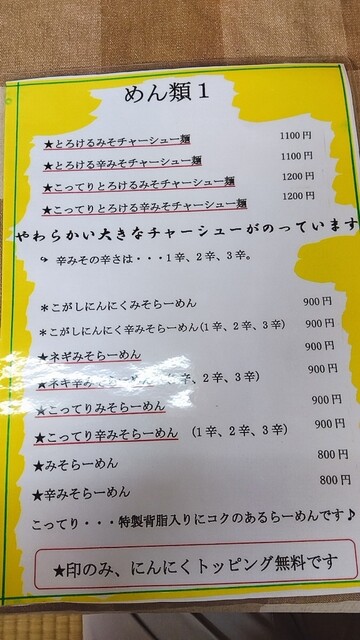 めん類1
★とろけるみそチャーシュー麺 1100円
★とろける辛みそチャーシュー麺 1100円
★こってりとろけるみそチャーシュー麺 1200円
★こってりとろける辛みそチャーシュー麺 1200円
やわらかい大きなチャーシューがのっています
↪ 辛みその辛さは・・・1辛、2辛、3辛。
＊こがしにんにくみそらーめん 900円
＊こがしにんにく辛みそらーめん(1辛、2辛、3辛) 900円
★ネギみそらーめん 900円
★ネギ辛みそらーめん 辛、2辛、3辛) 900円
★こってりみそらーめん 900円
★こってり辛みそらーめん (1辛、2辛、3辛) 900円
★みそらーめん 800円
★辛みそらーめん 800円
こってり・・・特製背脂入りにコクのあるらーめんです♪
★印のみ、にんにくトッピング無料です